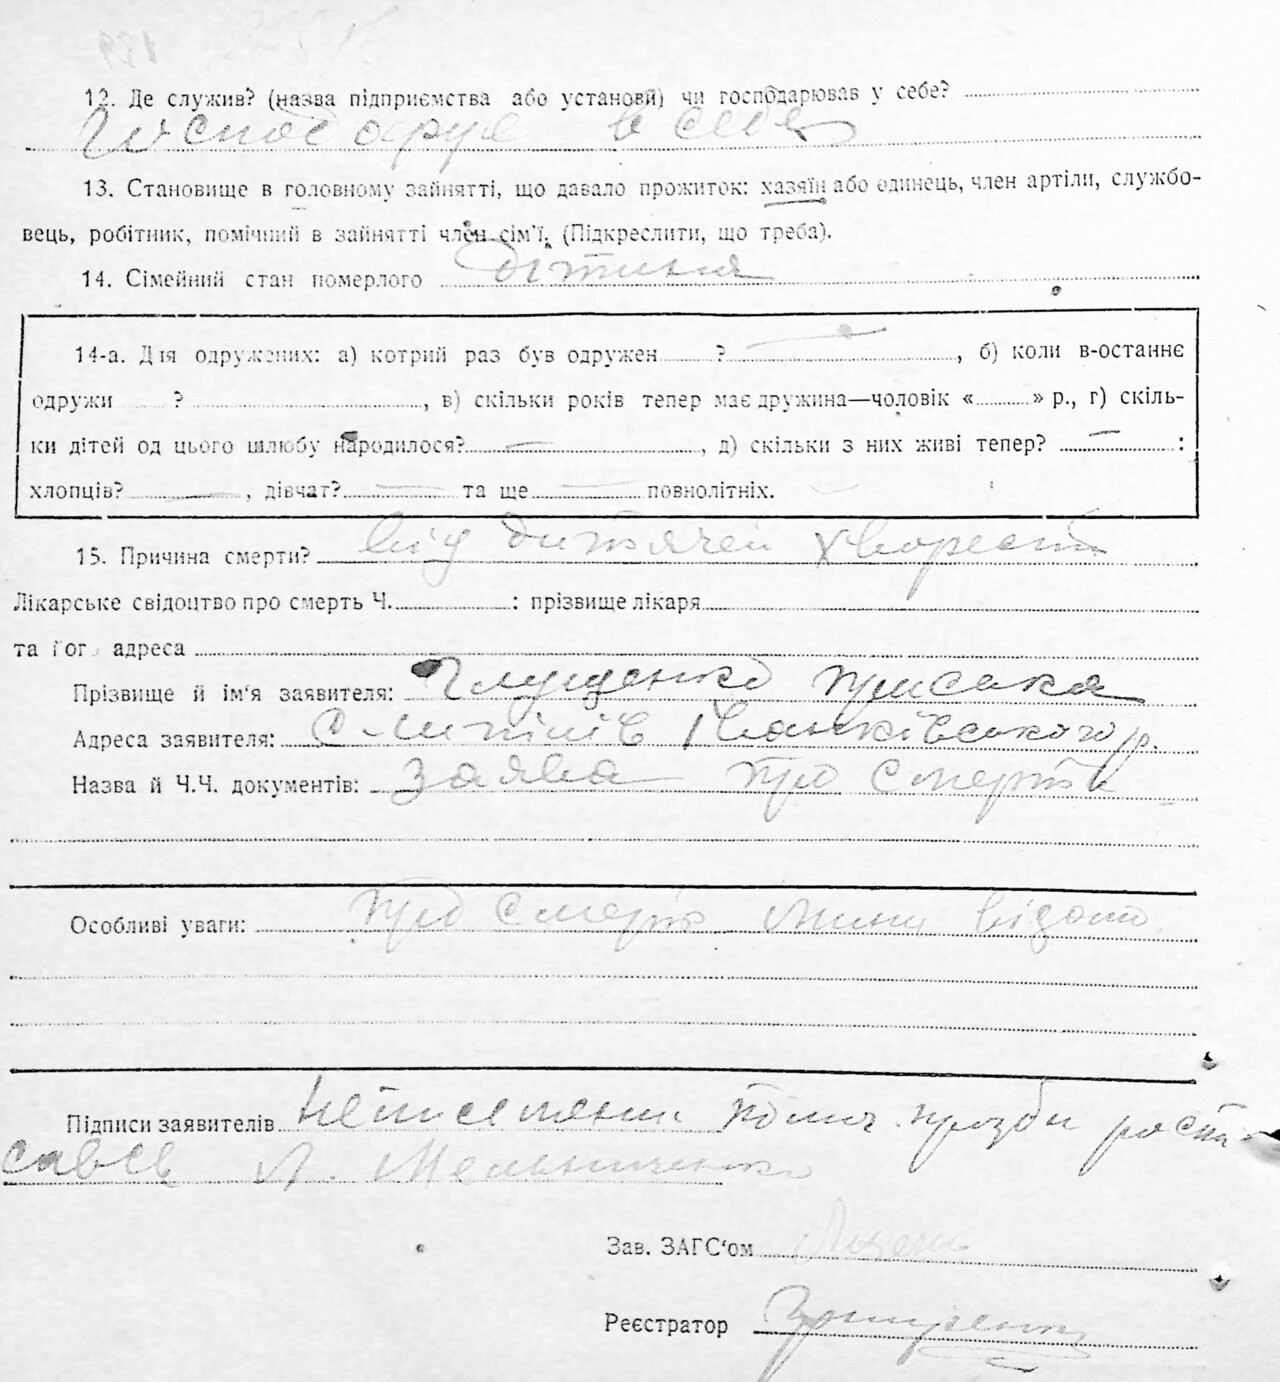 12. Де служив? (назва підприємства або установи) чи господарював у себе?
Господарує в себе
13. Становище в головному зайнятті, що давало прожиток: хазяїн або одинець, член артіли, службо-
вець, робітник, помічний в зайнятті член сім'ї. (Підкреслити, що треба).
14. Сімейний стан померлого дитина
14-а. Для одружених: а) котрий раз був одружен ? , б) коли в-останнє
одружи ? , в) скільки років тепер має дружина—чоловік « » р., г) скіль-
ки дітей од цього шлюбу народилося? — , д) скільки з них живі тепер? — :
хлопців? — , дівчат? — та ще — повнолітніх.
15. Причина смерти? від дитячей хворости
Лікарське свідоцтво про смерть Ч. : прізвище лікаря
та його адреса
Прізвище й ім'я заявителя: Глущенко Приська
Адреса заявителя: с Іванківського р.
Назва й Ч.Ч. документів: заява про смерть
Особливі уваги: про смерть відомо
Підписи заявителів неписьменни розпи
савсь Л. Мельниченко
Зав. ЗАГС'ом
Реєстратор